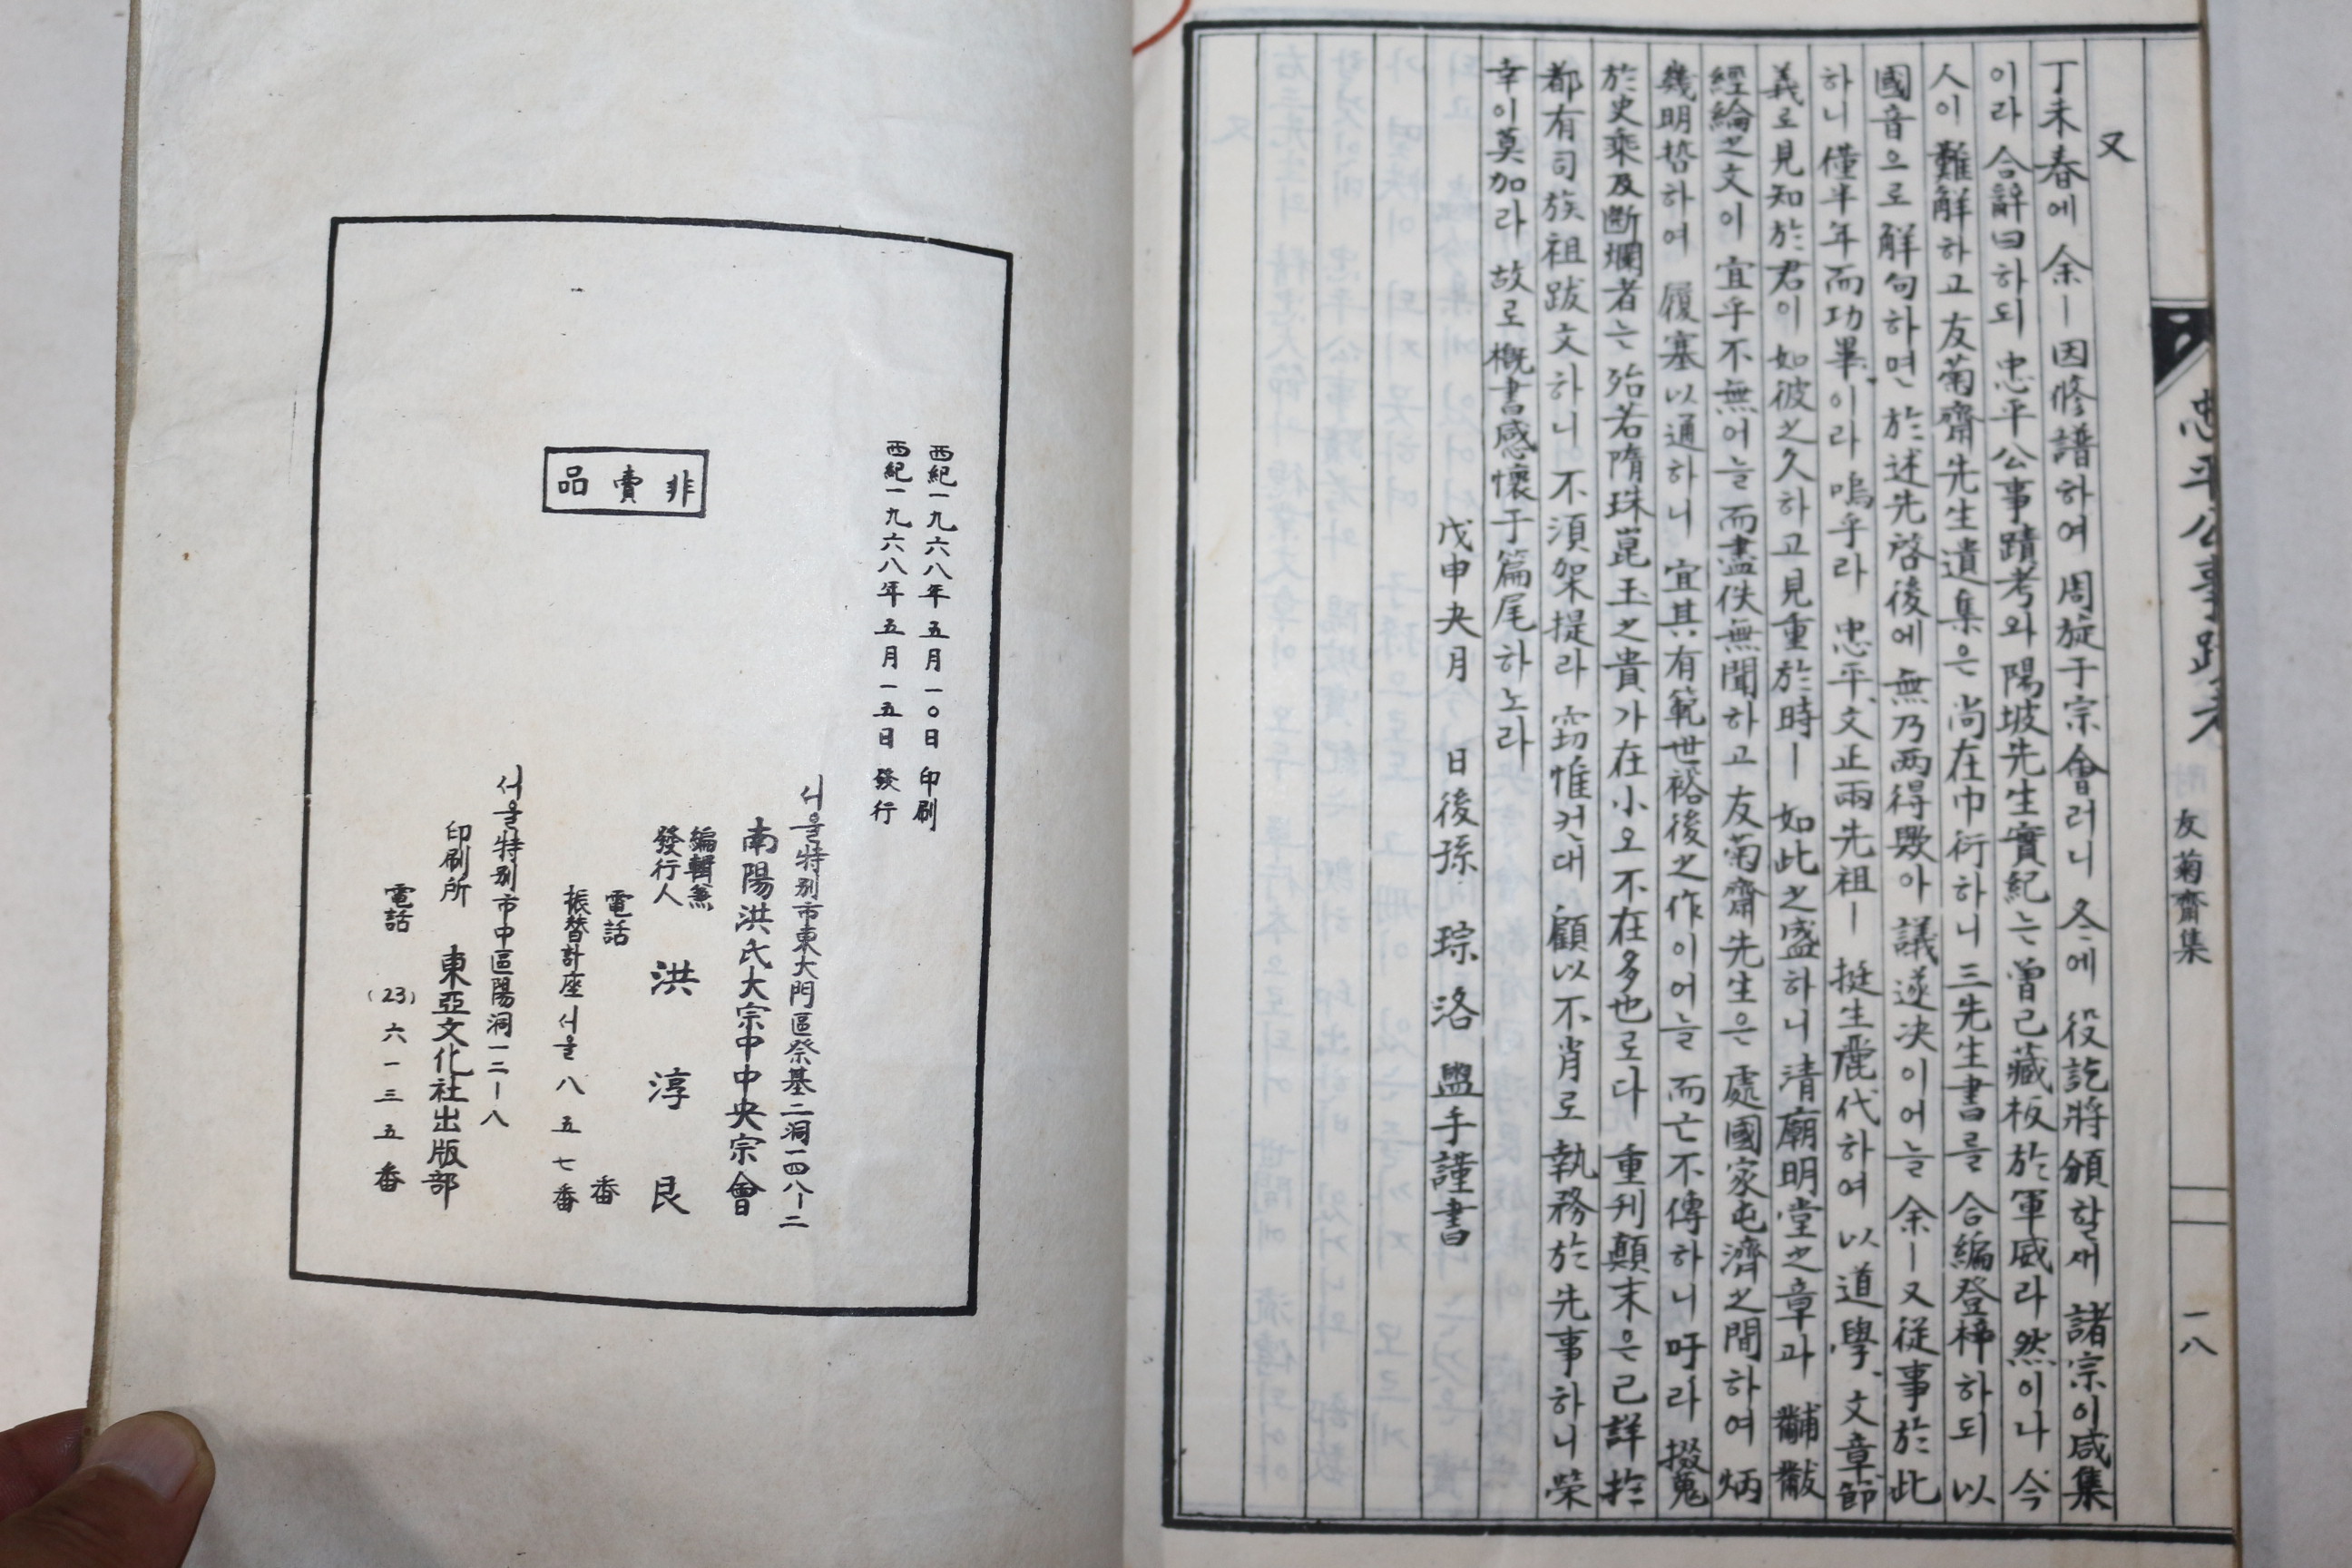 又
丁未春에 余ㅣ 因修譜하여 周旋于宗會러니 冬에 役訖將頒할새 諸宗이 咸集
이라 合辭曰하되 忠平公事蹟考와 陽坡先生實紀는 曾已藏板於軍威라 然이나 今
人이 難解하고 友菊齋先生遺集은 尚在巾衍하니 三先生書를 合編登梓하되 以
國音으로 解句하면 於述先啓後에 無乃兩得歟아 議遂決이어늘 余ㅣ 又從事於此
하니 僅半年而功畢이라 嗚乎라 忠平、文正兩先祖ㅣ 挺生麗代하여 以道學、文章節
義로 見知於君이 如彼之久하고 見重於時ㅣ 如此之盛하니 清廟明堂之章과 黼黻
經綸之文이 宜乎不無어늘 而盡佚無聞하고 友菊齋先生은 處國家屯濟之間하여 炳
幾明哲하여 履塞以通하니 宜其有範世裕後之作이어늘 而亡不傳하니 吁라 掇蒐
於史乘及斷爛者는 殆若隋珠崑玉之貴가 在小오 不在多也로다 重刊顛末은 已詳於
都有司族祖跋文하니 不須架提라 窃惟컨대 顧以不肖로 執務於先事하니 榮
幸이 莫加라 故로 概書感懷于篇尾하노라
戊申夬月 日 後孫 琮洛 盥手謹書
忠平公事蹟考 友菊齋集 一八
西紀一九六八年五月一○日 印刷
西紀一九六八年五月一五日 發行
非賣品
서울特別市東大門區祭基二洞一四八ㅣ二
南陽洪氏大宗中中央宗會
編輯兼
發行人 洪淳艮
電話 番
振替計座서울八五七番
서울特別市中區陽洞一二ㅣ八
印刷所 東亞文化社出版部
電話 (23) 六一三五番